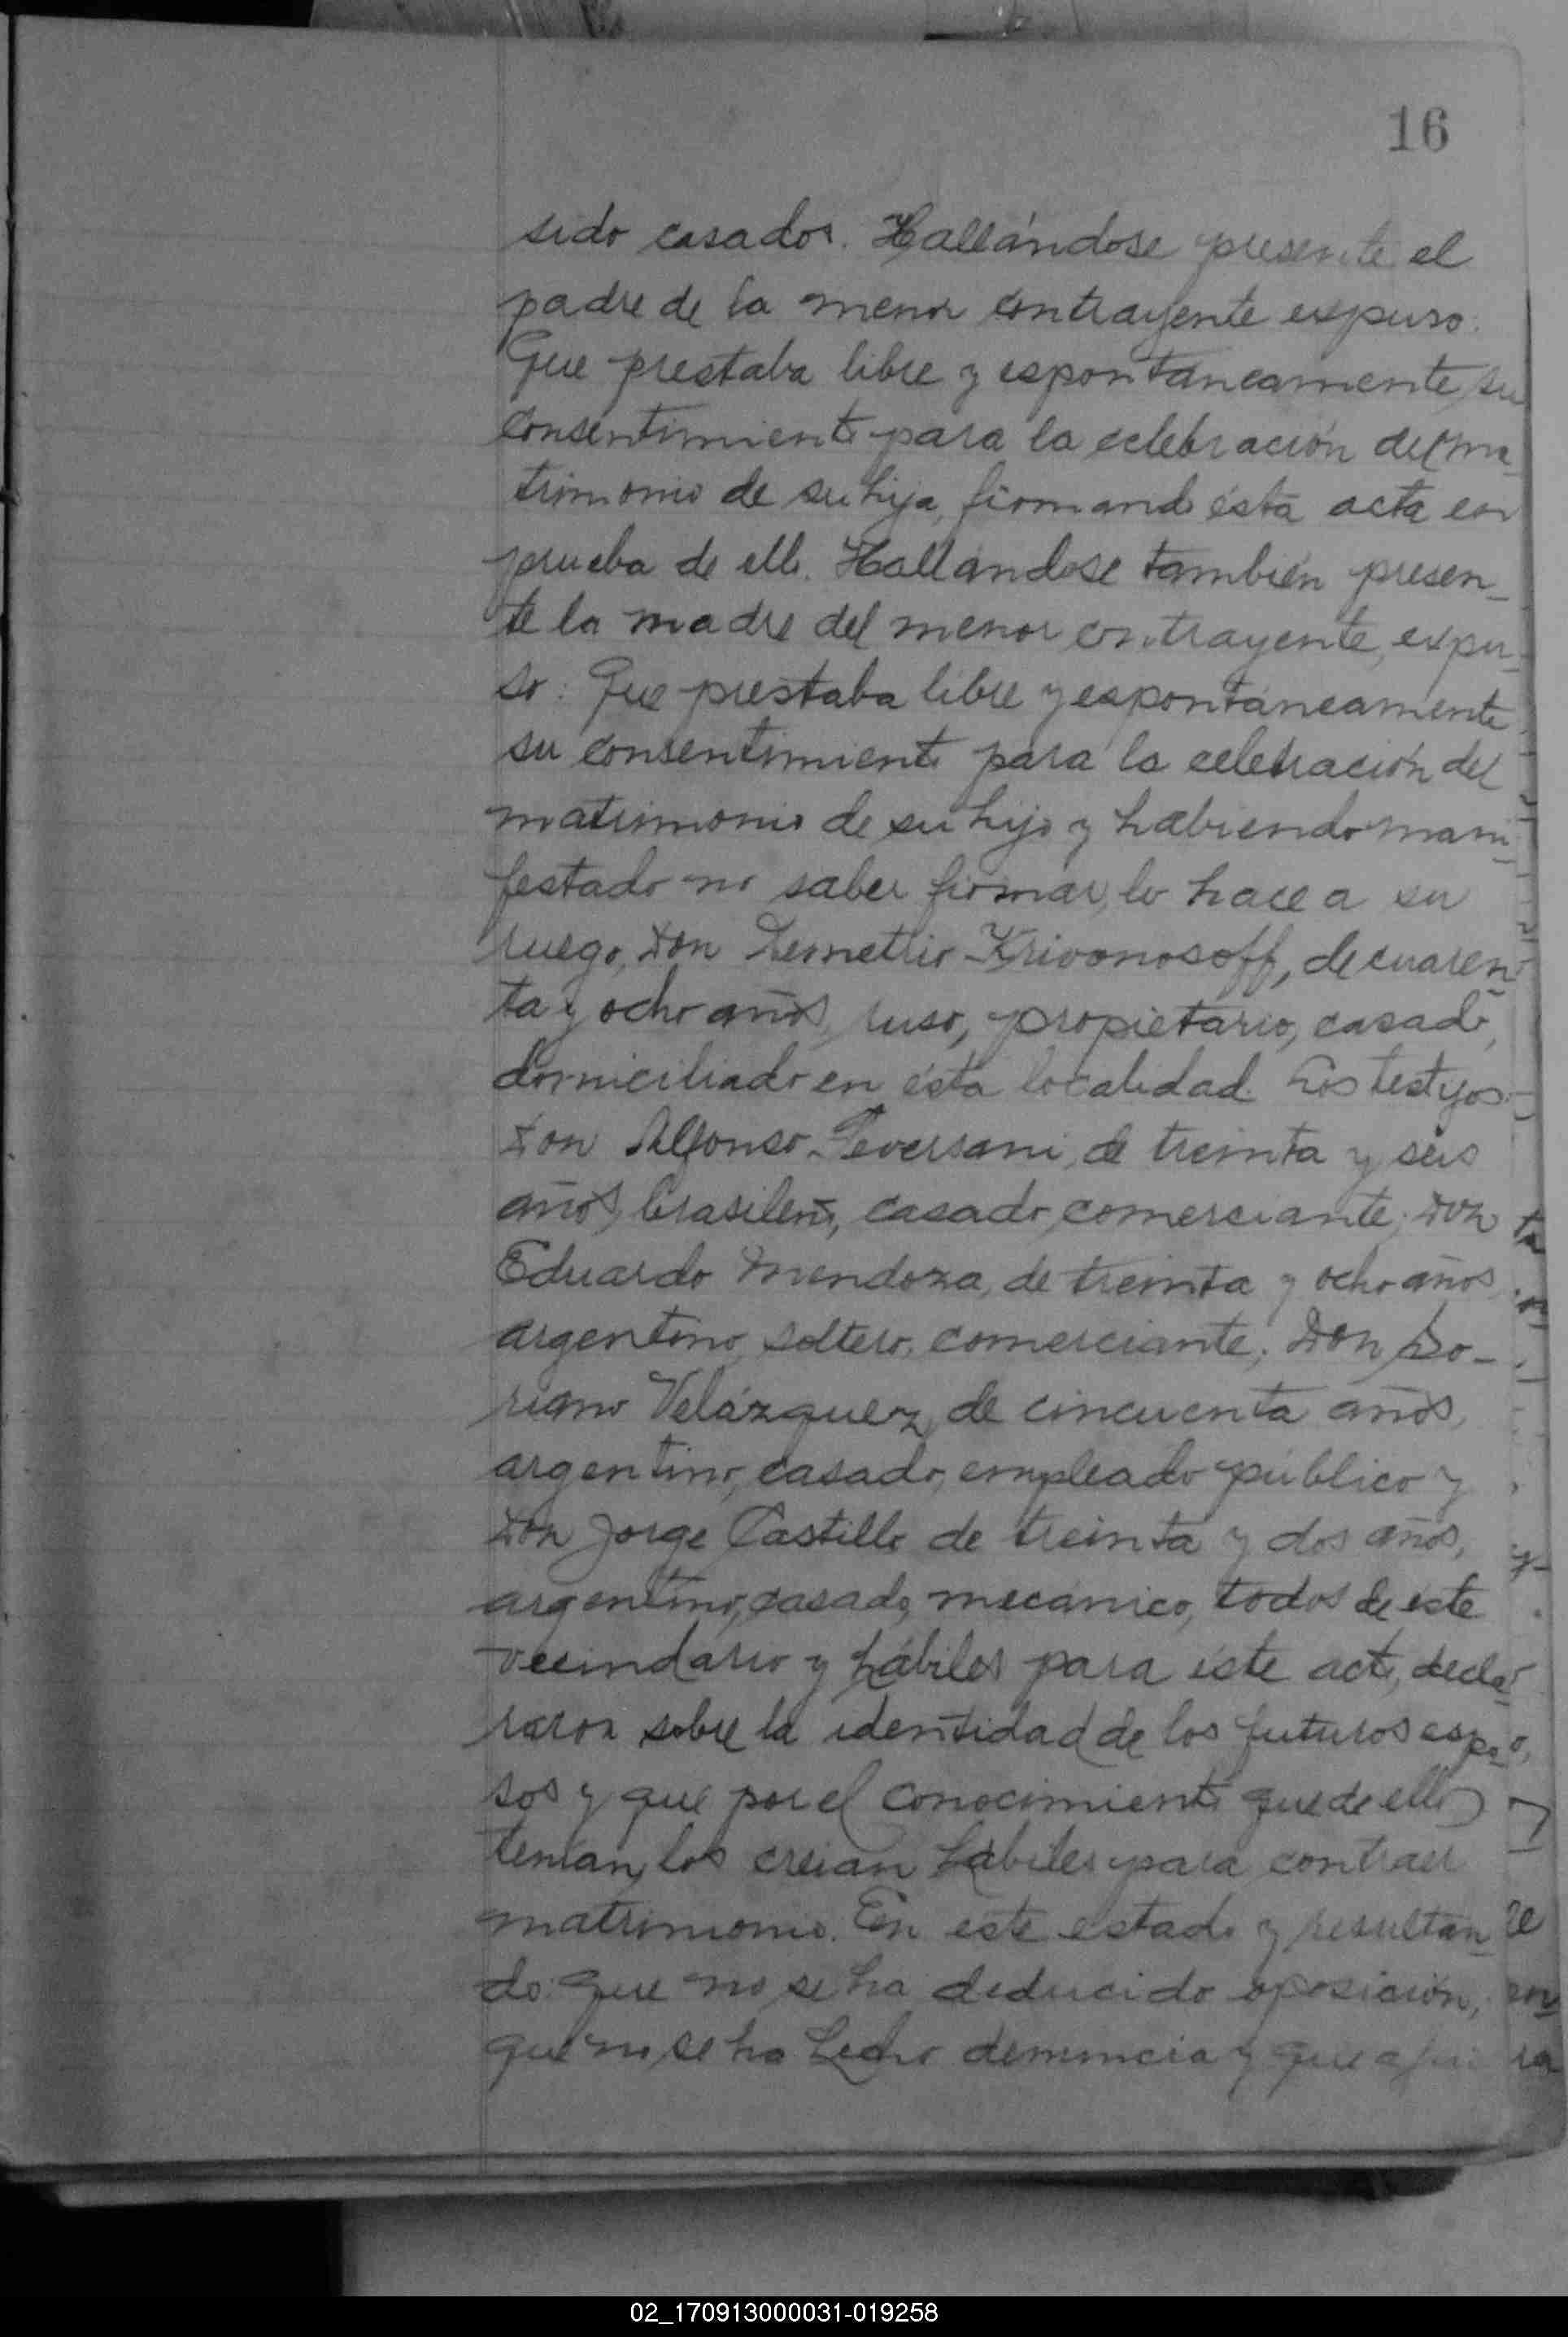 16
sido casados. Hallándose presente el
padre de la menor contrayente expuso:
Que prestaba libre y espontáneamente su
consentimiento para la celebración del ma-
trimonio de su hija, firmando ésta acta en
prueba de ello. Hallándose también presen-
te la madre del menor contrayente, expu-
so: Que prestaba libre y espontáneamente
su consentimiento para la celebración del
matrimonio de su hijo y habiendo mani-
festado no saber firmar, lo hace a su
ruego, Don Demetrio Krivonosoff, de cuaren-
ta y ocho años, ruso, propietario, casado,
domiciliado en ésta localidad. Los testigos:
Don Alfonso Peversani, de treinta y seis
años, brasileño, casado, comerciante; Don
Eduardo Mendoza, de treinta y ocho años,
argentino, soltero, comerciante; Don Do-
riano Velázquez, de cincuenta años,
argentino, casado, empleado público y
Don Jorge Castillo de treinta y dos años,
argentino, casado, mecánico, todos de éste
vecindario y hábiles para éste acto, decla-
raron sobre la identidad de los futuros espo-
sos y que por el conocimiento que de ellos
tenían, los creían hábiles para contraer
matrimonio. En este estado y resultan-
do: que no se ha deducido oposición,
que no se ha hecho denuncia y que a
02_170913000031-019258